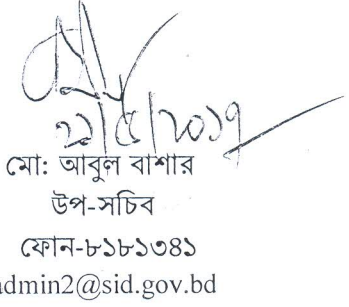 ২১/৫/২০১৭
মো: আবুল বাশার
উপ-সচিব
ফোন-৮১৮১৩৪১
admin2@sid.gov.bd